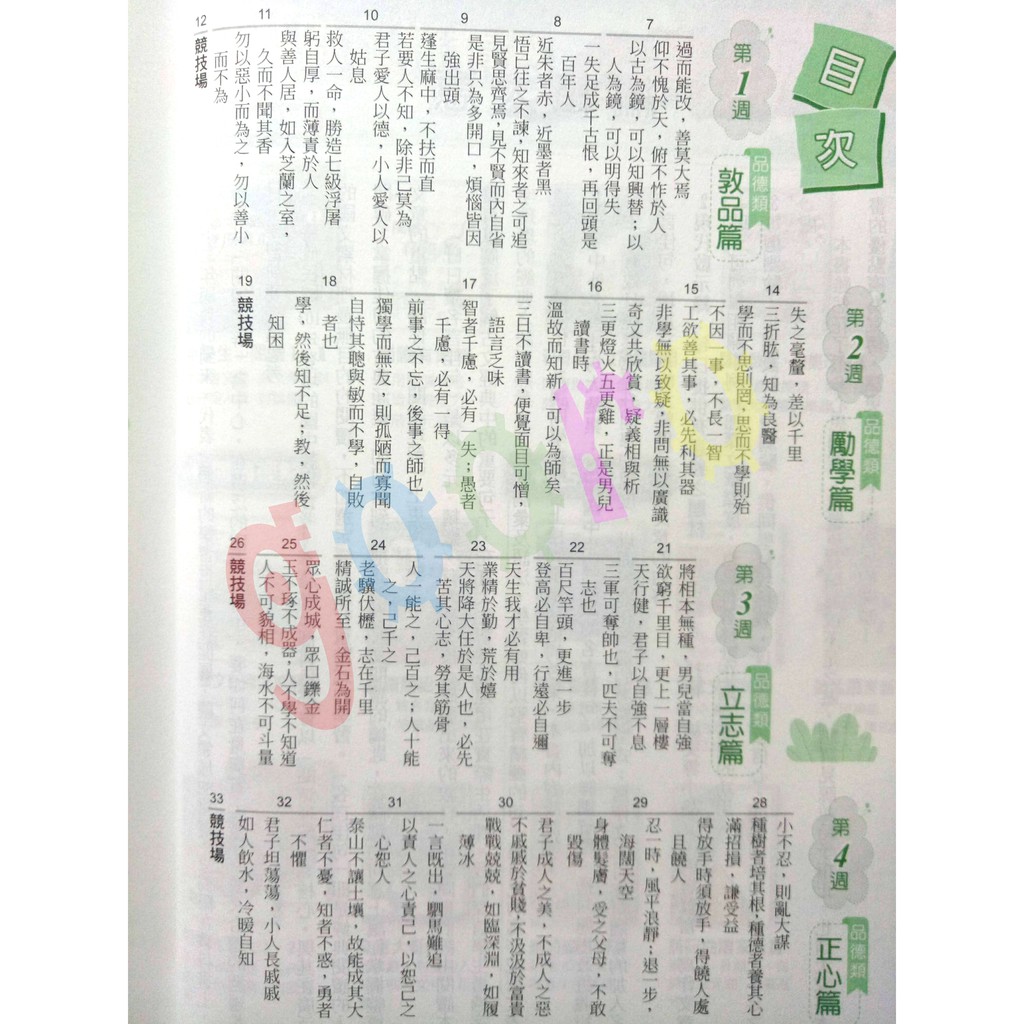 目次
第1週
品德類
敦品篇
7
過而能改，善莫大焉
仰不愧於天，俯不怍於人
以古為鏡，可以知興替；以
人為鏡，可以明得失
8
一失足成千古恨，再回頭是
百年人
近朱者赤，近墨者黑
悟已往之不諫，知來者之可追
9
見賢思齊焉，見不賢而內自省
是非只為多開口，煩惱皆因
強出頭
蓬生麻中，不扶而直
10
若要人不知，除非己莫為
君子愛人以德，小人愛人以
姑息
救人一命，勝造七級浮屠
11
躬自厚，而薄責於人
與善人居，如入芝蘭之室，
久而不聞其香
勿以惡小而為之，勿以善小
而不為
12
競技場
第2週
品德類
勵學篇
14
失之毫釐，差以千里
三折肱，知為良醫
學而不思則罔，思而不學則殆
15
不因一事，不長一智
工欲善其事，必先利其器
非學無以致疑，非問無以廣識
16
奇文共欣賞，疑義相與析
三更燈火五更雞，正是男兒
讀書時
溫故而知新，可以為師矣
17
三日不讀書，便覺面目可憎，
語言乏味
智者千慮，必有一失；愚者
千慮，必有一得
18
前事之不忘，後事之師也
獨學而無友，則孤陋而寡聞
自恃其聰與敏而不學，自敗
者也
學，然後知不足；教，然後
知困
19
競技場
第3週
品德類
立志篇
21
將相本無種，男兒當自強
欲窮千里目，更上一層樓
天行健，君子以自強不息
22
三軍可奪帥也，匹夫不可奪
志也
百尺竿頭，更進一步
登高必自卑，行遠必自邇
23
天生我才必有用
業精於勤，荒於嬉
天將降大任於是人也，必先
苦其心志，勞其筋骨
24
人一能之，己百之；人十能
之，己千之
老驥伏櫪，志在千里
精誠所至，金石為開
25
眾心成城，眾口鑠金
玉不琢不成器，人不學不知道
人不可貌相，海水不可斗量
26
競技場
第4週
品德類
正心篇
28
小不忍，則亂大謀
種樹者培其根，種德者養其心
滿招損，謙受益
29
得放手時須放手，得饒人處
且饒人
忍一時，風平浪靜；退一步，
海闊天空
30
身體髮膚，受之父母，不敢
毀傷
君子成人之美，不成人之惡
不戚戚於貧賤，不汲汲於富貴
31
戰戰兢兢，如臨深淵，如履
薄冰
一言既出，駟馬難追
以責人之心責己，以恕己之
心恕人
32
泰山不讓土壤，故能成其大
仁者不憂，知者不惑，勇者
不懼
君子坦蕩蕩，小人長戚戚
如人飲水，冷暖自知
33
競技場